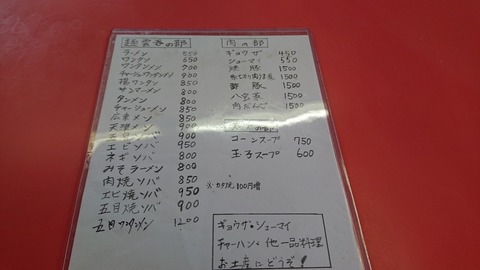 麺雲呑の部
ラーメン 550
ワンタン 650
ワンタンメン 700
チャーシューワンタンメン 900
揚ワンタン 850
サンマーメン 800
タンメン 800
チャーシューメン 850
広東メン 850
天津メン 900
五目ソバ 900
エビソバ 950
モヤシソバ 800
ネギソバ 800
みそラーメン 800
肉焼ソバ 850
エビ焼ソバ 950
五目焼ソバ 900
五目ワンタン 1200
肉の部
ギョウザ 450
シューマイ 550
焼豚 1500
酢豚 1500
八宝菜 1500
肉だんご 1500
の部
コーンスープ 750
玉子スープ 600
※カタ焼100円増
ギョウザ・シューマイ
チャーハン・他一品料理
お土産にどうぞ!